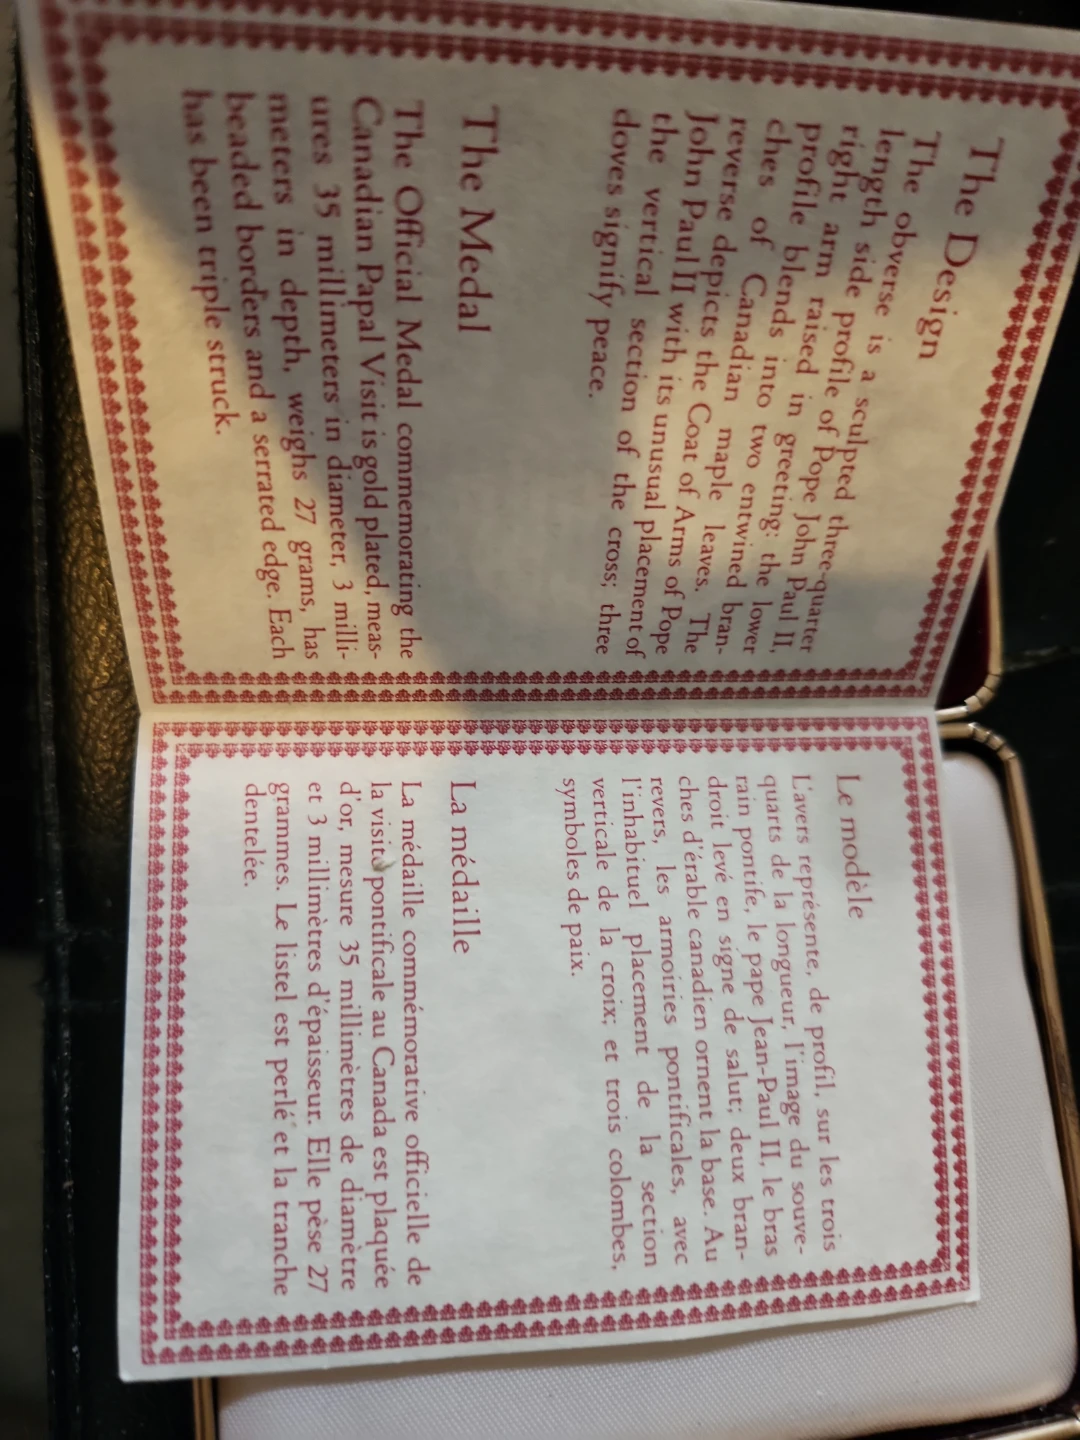 The Design
The obverse is a sculpted three-quarter
length side profile of Pope John Paul II,
right arm raised in greeting: the lower
profile blends into two entwined bran-
ches of Canadian maple leaves. The
reverse depicts the Coat of Arms of Pope
John Paul II with its unusual placement of
the vertical section of the cross; three
doves signify peace.
The Medal
The Official Medal commemorating the
Canadian Papal Visit is gold plated, meas-
ures 35 millimeters in diameter, 3 milli-
meters in depth, weighs 27 grams, has
beaded borders and a serrated edge. Each
has been triple struck.
Le modèle
L'avers représente, de profil, sur les trois
quarts de la longueur, l'image du souve-
rain pontife, le pape Jean-Paul II, le bras
droit levé en signe de salut; deux bran-
ches d'érable canadien ornent la base. Au
revers, les armoiries pontificales, avec
l'inhabituel placement de la section
verticale de la croix; et trois colombes,
symboles de paix.
La médaille
La médaille commémorative officielle de
la visite pontificale au Canada est plaquée
d'or, mesure 35 millimètres de diamètre
et 3 millimètres d'épaisseur. Elle pèse 27
grammes. Le listel est perlé et la tranche
dentelée.